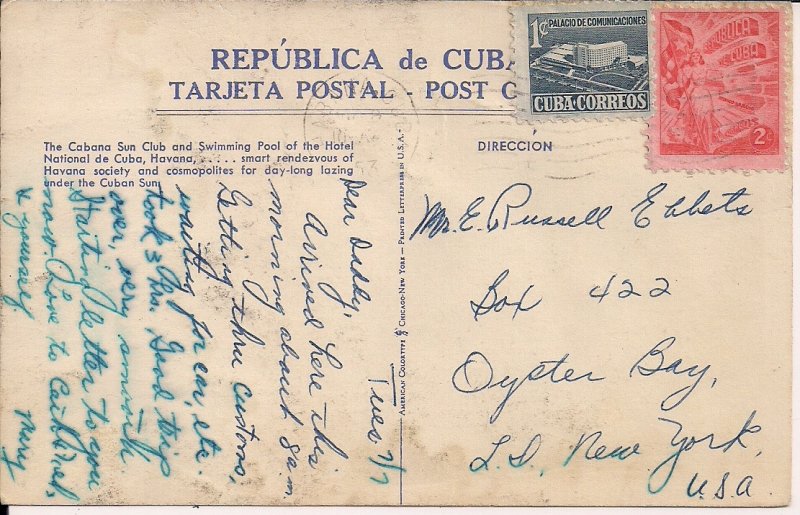 REPÚBLICA de CUBA
TARJETA POSTAL - POST C
1¢ PALACIO DE COMUNICACIONES
CUBA·CORREOS
REPUBLICA
DE CUBA
2¢
The Cabana Sun Club and Swimming Pool of the Hotel
National de Cuba, Havana, ..... smart rendezvous of
Havana society and cosmopolites for day-long lazing
under the Cuban Sun.
DIRECCIÓN
AMERICAN COLORTYPE CHICAGO-NEW YORK — PRINTED LETTERPRESS IN U.S.A.
Tues 7/7
Dear Daddy,
Arrived here this
morning about 8 a.m.
Getting thru customs,
waiting for car, etc.
took 3 hrs. Good trip
over, very smooth
Starting letter to you
now. Love to
& yourself
Mary
Mr. E. Russell Ebbets
Box 422
Oyster Bay,
L.I. New York,
U.S.A.